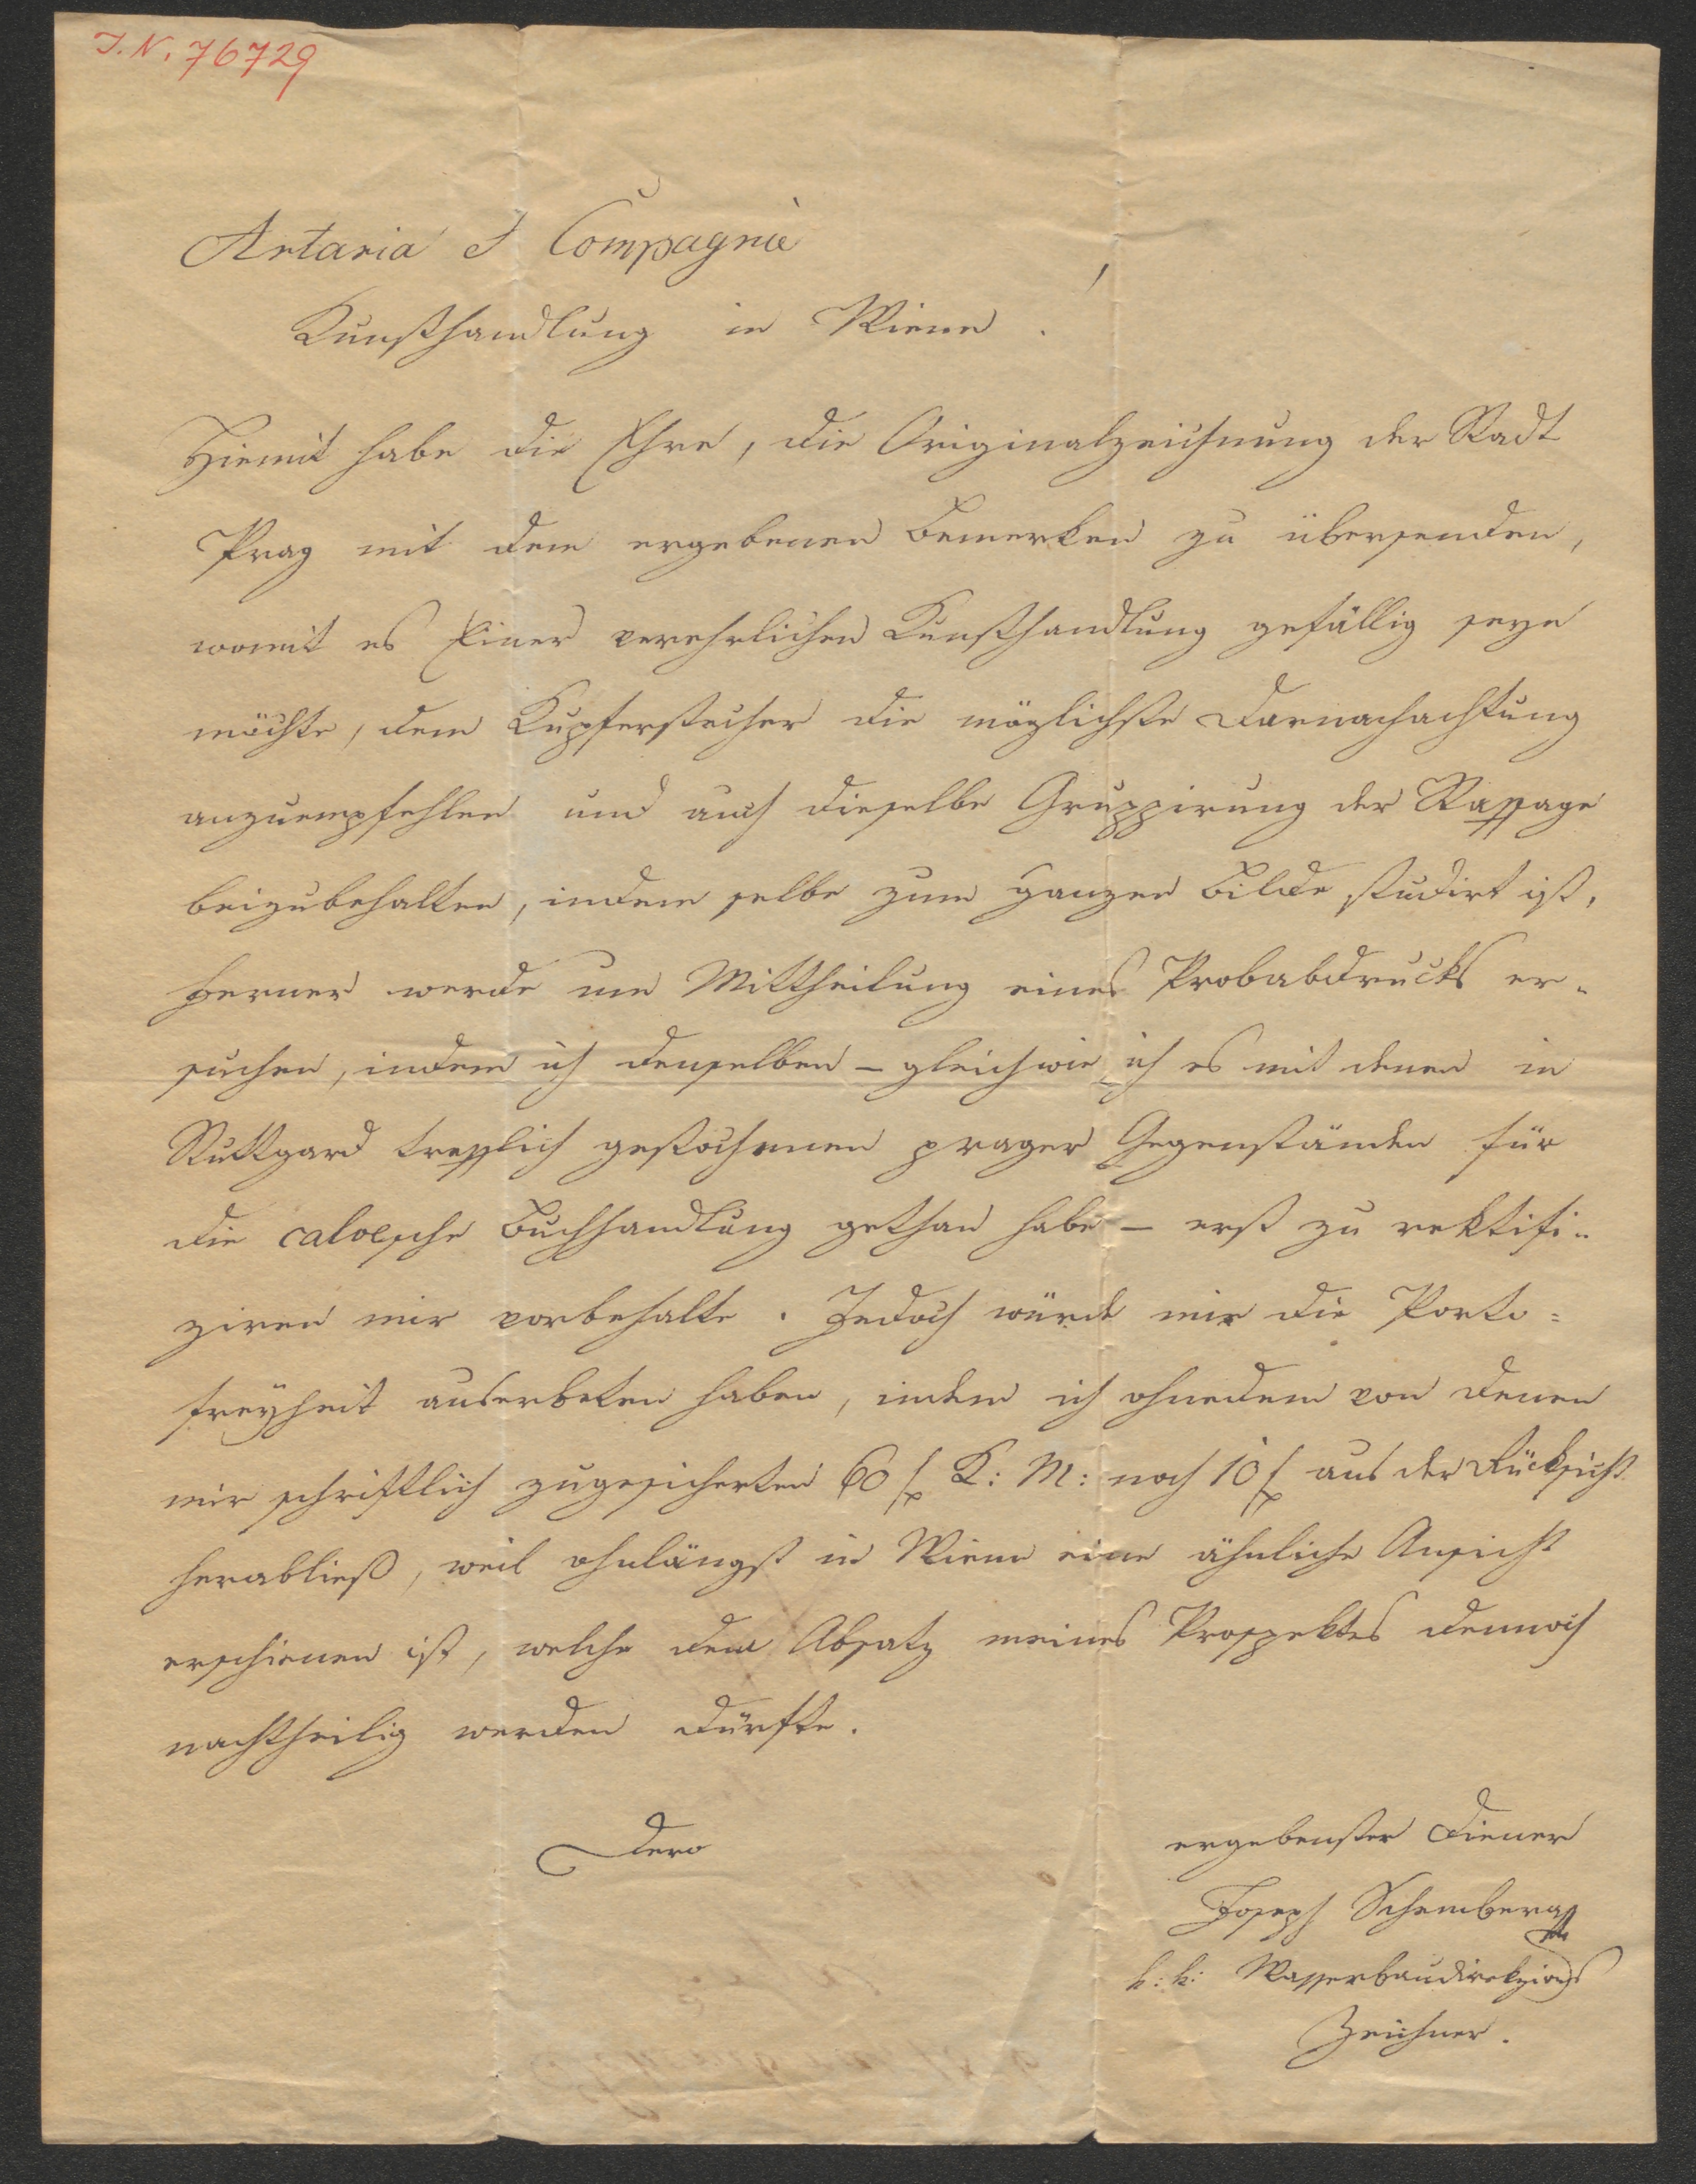 I. N. 76729
Artaria et Compagnie
Kunsthandlung in Wienn.
Hiemit habe die Ehre, die Originalzeichnung der Stadt
Prag mit dem ergebenen Bemerken zu übersenden,
womit es Einer verehrlichen Kunsthandlung gefällig seyn
möchte, dem Kupferstecher die möglichste Darnachachtung
anzuempfehlen und auch dieselbe Gruppirung der Staffage
beizubehalten, indem selbe zum ganzen Bilde studirt ist.
Ferner werde um Mittheilung eines Probabdrucks er-
suchen, indem ich denselben – gleichwie ich es mit denen in
Stuttgard trefflich gestochenen prager Gegenständen für
die calvesche Buchhandlung gethan habe – erst zu rektifi-
ziren mir vorbehalte. Jedoch würde mir die Porto=
freyheit auserbeten haben, indem ich ohnedem von denen
mir schriftlich zugesicherten 60 f K: M: noch 10 f aus der Rücksicht
herabließ, weil ohnlängst in Wienn eine ähnliche Ansicht
erschienen ist, welche dem Absatz meines Prospektes dennoch
nachtheilig werden dürfte.
Dero
ergebenster Diener
Joseph Schembera
k: k: Wasserbaudirekzions
Zeichner.